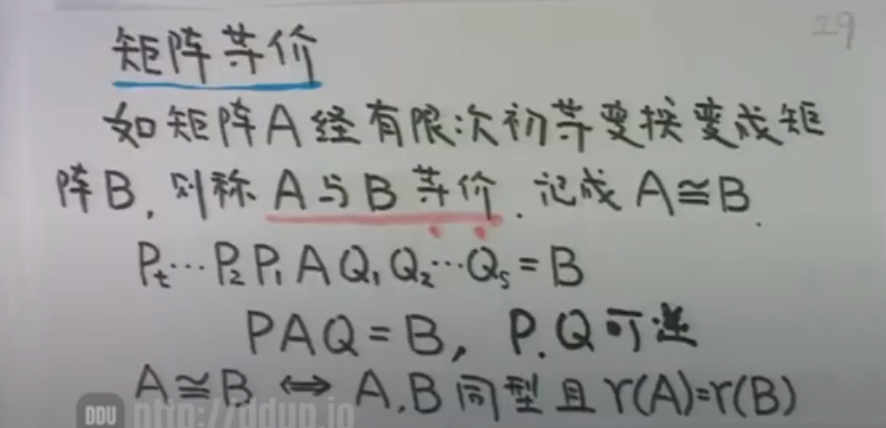 29
矩阵等价
如矩阵A经有限次初等变换变成矩
阵B,则称A与B等价.记成A≅B.
Pₜ…P₂P₁AQ₁Q₂…Qₛ=B
PAQ=B, P.Q可逆
A≅B ⇔ A,B同型且r(A)=r(B)
DDU http://ddup.io